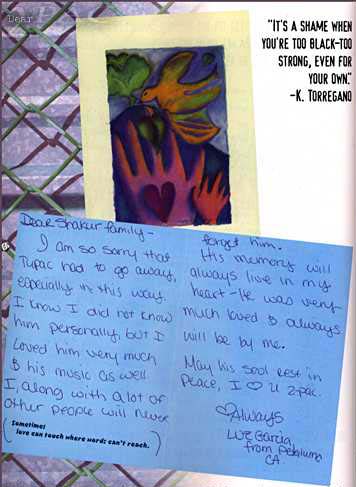 Dear
"IT'S A SHAME WHEN
YOU'RE TOO BLACK-TOO
STRONG, EVEN FOR
YOUR OWN."
-K. TORREGANO
Dear Shakur family-
I am so sorry that
Tupac had to go away,
especially in this way.
I know I did not know
him personally, but I
loved him very much
& his music as well.
I, along with a lot of
other people will never
(Sometimes
love can touch where words can't reach.)
forget him.
His memory will
always live in my
heart - He was very
much loved & always
will be by me.
May his soul rest in
Peace, I ♡ U 2-pac.
♡Always
Luz Garcia,
from Petaluma
CA